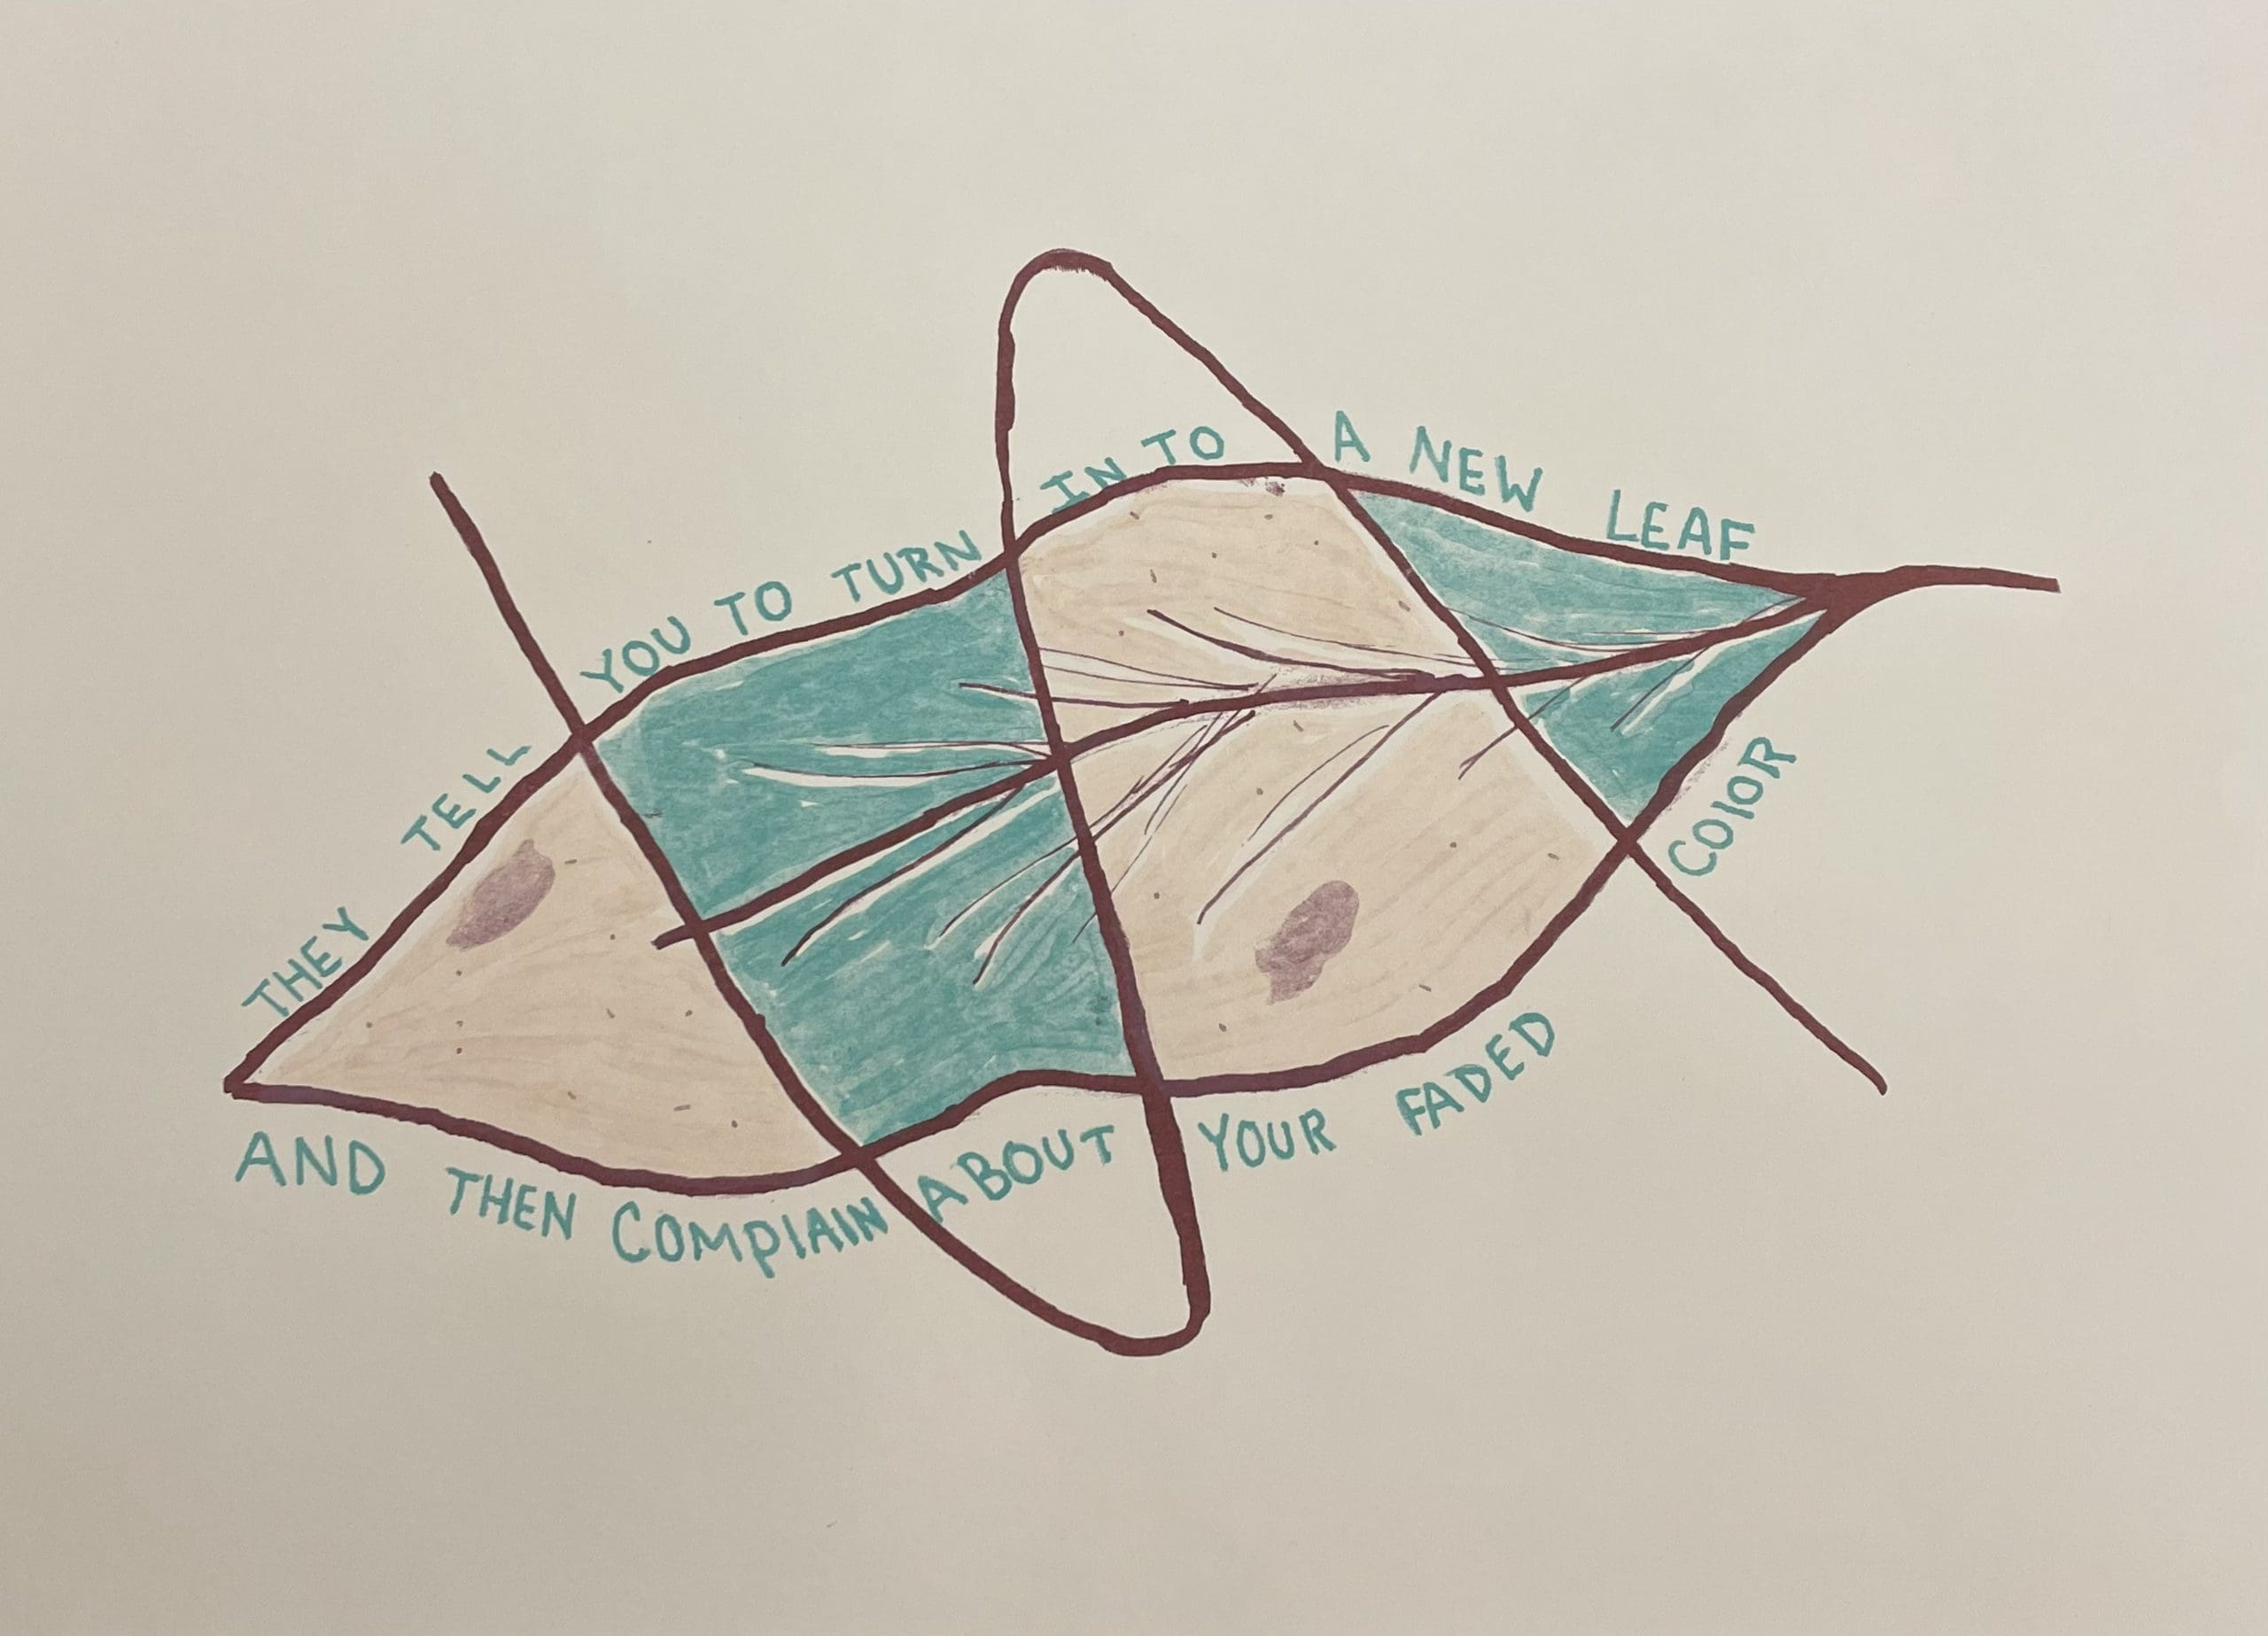 THEY TELL YOU TO TURN IN TO A NEW LEAF
AND THEN COMPlAIN ABOUT YOUR FADED COlOR